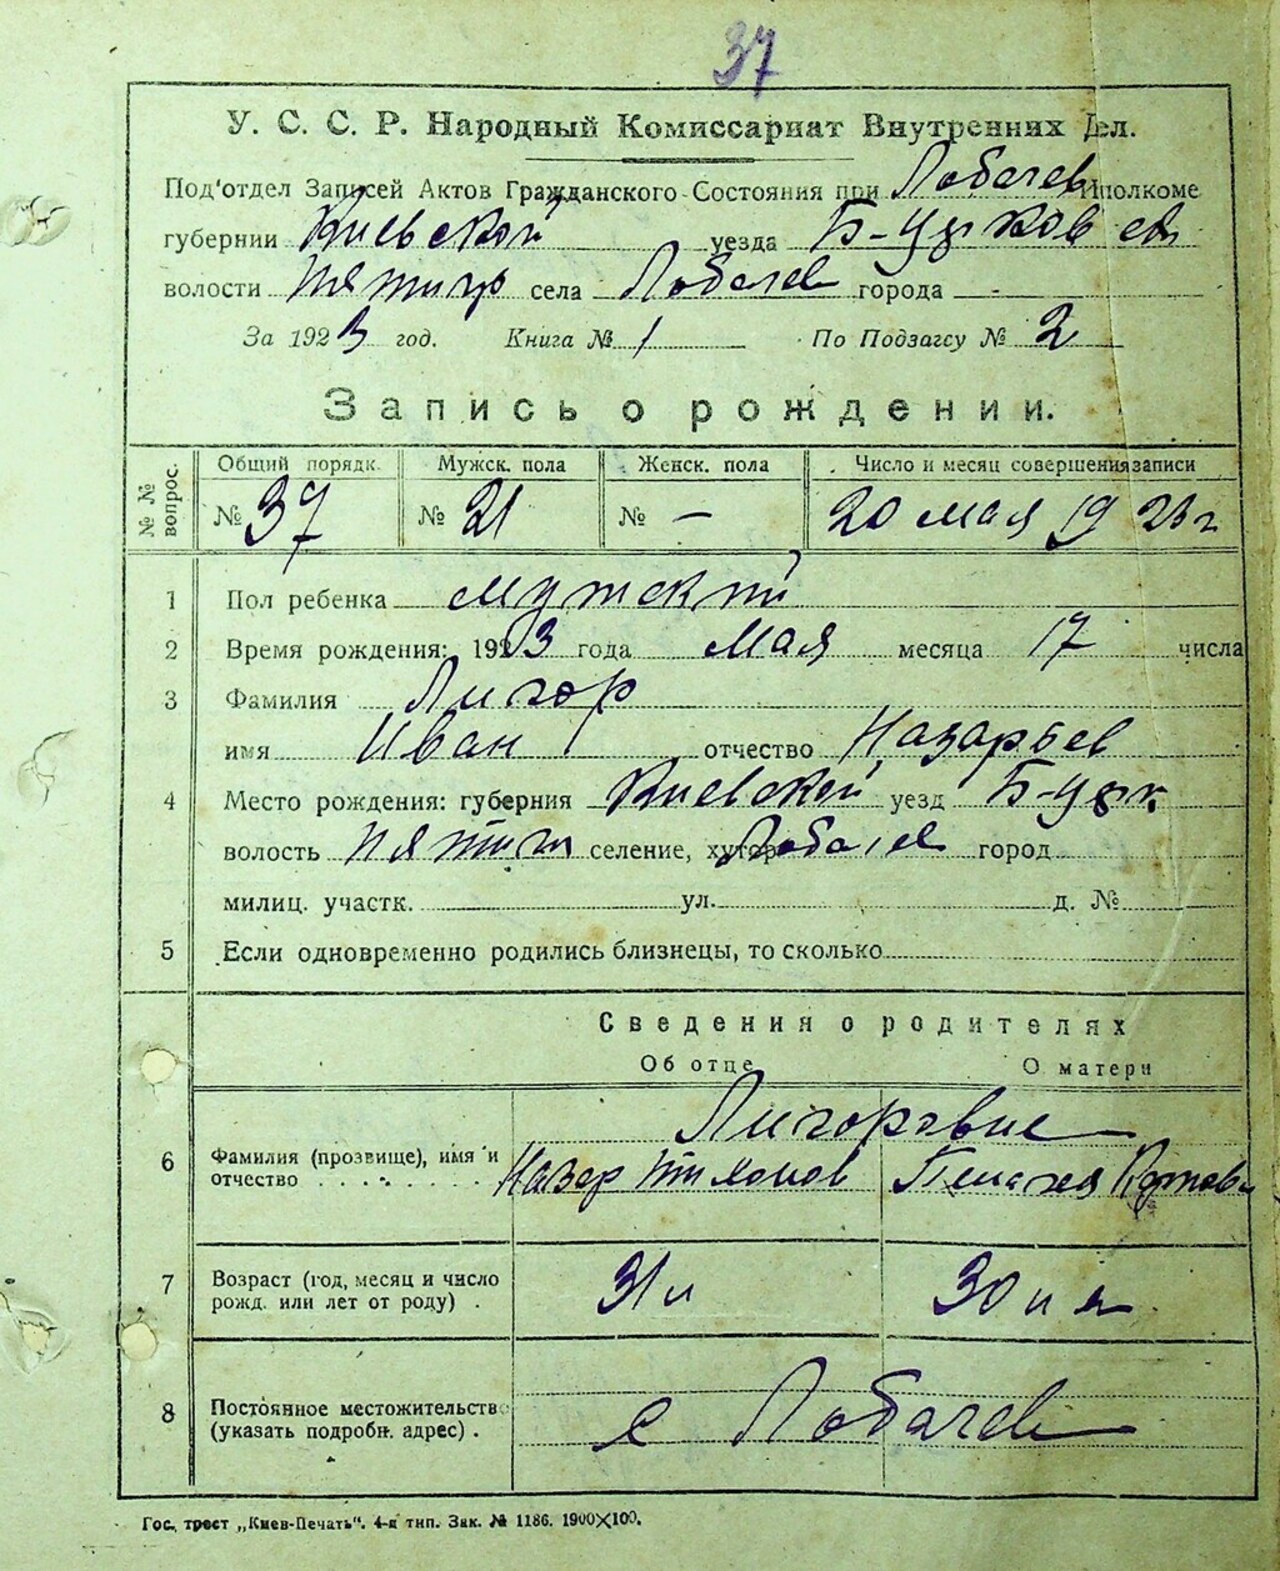 37
У. С. С. Р. Народный Комиссариат Внутренних Дел.
Под'отдел Записей Актов Гражданского Состояния при Лобачев Иполкоме
губернии Киевской уезда Б-Церковсед
волости Пятигр села Лобачев города -
За 1923 год. Книга № 1 По Подзагсу № 2
Запись о рождении.
№ № вопрос. Общий порядк. Мужск. пола Женск. пола Число и месяц совершения записи
№ 37 № 21 № — 20 мая 1923 г
1 Пол ребенка мужский
2 Время рождения: 1923 года Мая месяца 17 числа
3 Фамилия Лигор
имя Иван отчество Назарьев
4 Место рождения: губерния Киевской уезд Б-Церк
волость Пятиги селение, хутор Лобачев город
милиц. участк. ул. д. №
5 Если одновременно родились близнецы, то сколько
Сведения о родителях
Об отце О матери
Лигоровие
6 Фамилия (прозвище), имя и Назар Тихонов
отчество
7 Возраст (год, месяц и число 31 л 30 и л
рожд. или лет от роду) .
8 Постоянное местожительств с Лобачев
(указать подробн. адрес) .
Гос. трест „Киев-Печать“. 4-я тип. Зак. № 1186. 1900×100.